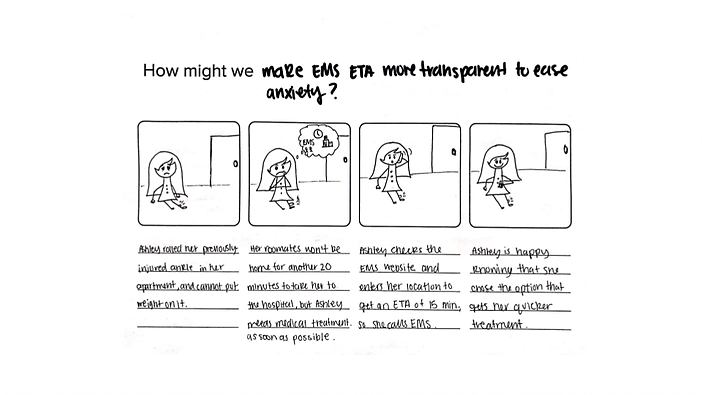 How might we make EMS ETA more transparent to ease
anxiety?
EMS
Ashley rolled her previously
injured ankle in her
apartment, and cannot put
weight on it.
Her roomates won't be
home for another 20
minutes to take her to
the hospital, but Ashley
needs medical treatment
as soon as possible.
Ashley checks the
EMS website and
enters her location to
get an ETA of 15 min,
so she calls EMS.
Ashley is happy
knowing that she
chose the option that
gets her quicker
treatment.